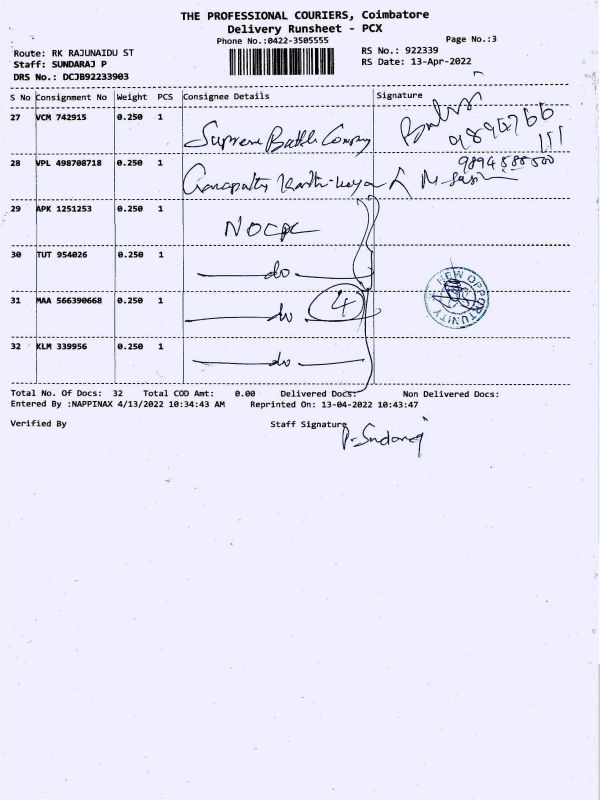 THE PROFESSIONAL COURIERS, Coimbatore
Delivery Runsheet - PCX
Phone No.:0422-3505555
Page No.:3
Route: RK RAJUNAIDU ST
RS No.: 922339
Staff: SUNDARAJ P
RS Date: 13-Apr-2022
DRS No.: DCJB92233903
S No Consignment No Weight PCS Consignee Details Signature
27 VCM 742915 0.250 1 Supreme Bottle Company
28 VPL 498708718 0.250 1 9894588500
29 APK 1251253 0.250 1
30 TUT 954026 0.250 1 do
31 MAA 566390668 0.250 1 do 4
32 KLM 339956 0.250 1 do
NEW OPPORTUNITY
Total No. Of Docs: 32 Total COD Amt: 0.00 Delivered Docs: Non Delivered Docs:
Entered By :NAPPINAX 4/13/2022 10:34:43 AM Reprinted On: 13-04-2022 10:43:47
Verified By Staff Signature P. Sundaraj